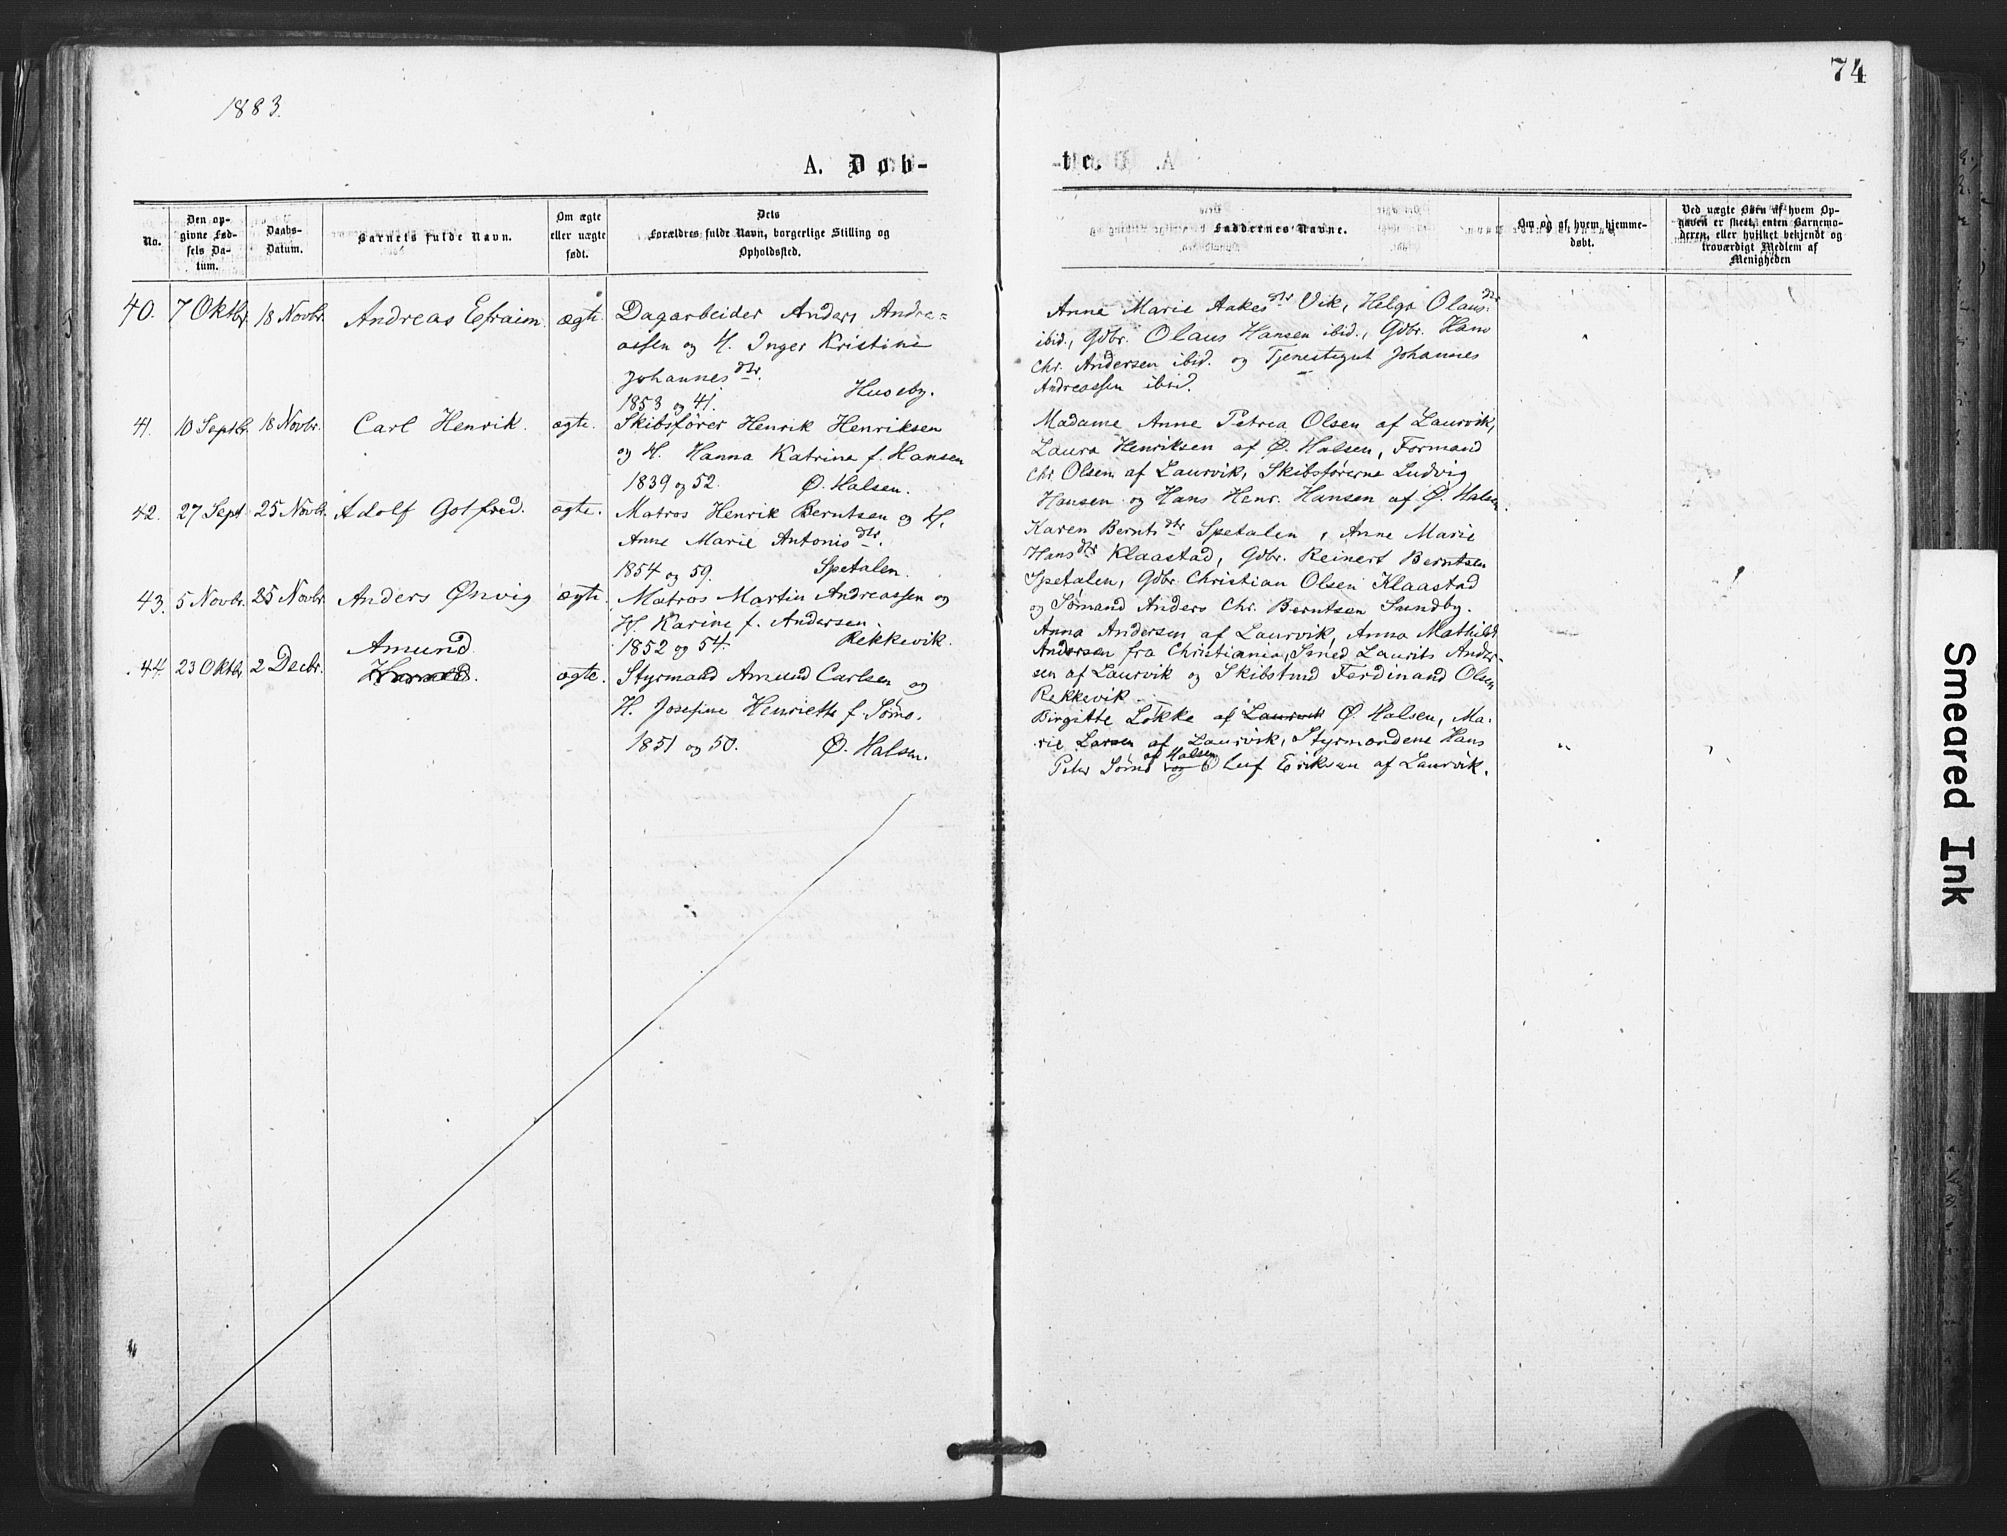 74
1883.
A. Døb-
te.
No.
Den op-
givne Fød-
sels Da-
tum.
Daabs-
Datum.
Barnets fulde Navn.
Om ægte
eller uægte
født.
Dets
Forældres fulde Navn, borgerlige Stilling og
Opholdssted.
Faddernes Navne.
Om og af hvem hjemme-
døbt.
Ved uægte Børn af hvem Op-
gaven er skeet, enten Barnemo-
deren, eller hvilket bekjendt og
troværdigt Medlem af
Menigheden
40. 7 Oktbr. 18 Novbr. Andreas Efraim. ægte. Dagarbeider Anders Andre=
assen og H. Inger Kristine
Johannesdtr.
Huseby.
1853 og 41.
Anne Marie Aakesdtr Vik, Helga Olausdtr
ibid., Gdbr. Olaus Hansen ibid., Gdbr. Hans
Chr. Andersen ibid. og Tjenestegut Johannes
Andreassen ibid.
41. 10 Septbr. 18 Novbr. Carl Henrik. ægte. Skibsfører Henrik Henriksen
og H. Hanna Katrina f. Hansen
1839 og 52. Ø. Halsen.
Madame Anne Petrea Olsen af Laurvik,
Laura Henriksen af Ø. Halsen, Formand
Chr. Olsen af Laurvik, Skibsførerne Ludvig
Hansen og Hans Henr. Hansen af Ø. Halsen.
42. 27 Sept 25 Novbr. Adolf Gotfred. ægte. Matros Henrik Berntsen og H.
Anne Marie Antonisdtr.
1854 og 59. Spetalen.
Karen Berntsdtr Spetalen, Anne Marie
Hansdtr Klaastad, Gdbr. Reinert Berntsen
Spetalen, Gdbr. Christian Olsen Klaastad
og Sømand Anders Chr. Berntsen Sundby.
43. 5 Novbr. 25 Novbr. Anders Ønvig ægte. Matros Martin Andreassen og
H. Karine f. Andersen.
1852 og 54. Rekkevik.
Anna Andersen af Laurvik, Anna Mathilde
Andersen fra Christiania, Smed Laurits Ander-
sen af Laurvik og Skibstmd Ferdinand Olsen
Rekkevik.
Amund.
44. 23 Oktbr. 2 Decbr. ægte. Styrmand Amund Carlsen og
H. Josefine Henriette f. Sørns.
1851 og 50. Ø. Halsen.
Birgitte Løkke af Laurvik Ø. Halsen, Ma-
rie Larsen af Laurvik, Styrmændene Hans
af Halsen
Peter Sørns og Oluf Eriksen af Laurvik.
Smeared Ink